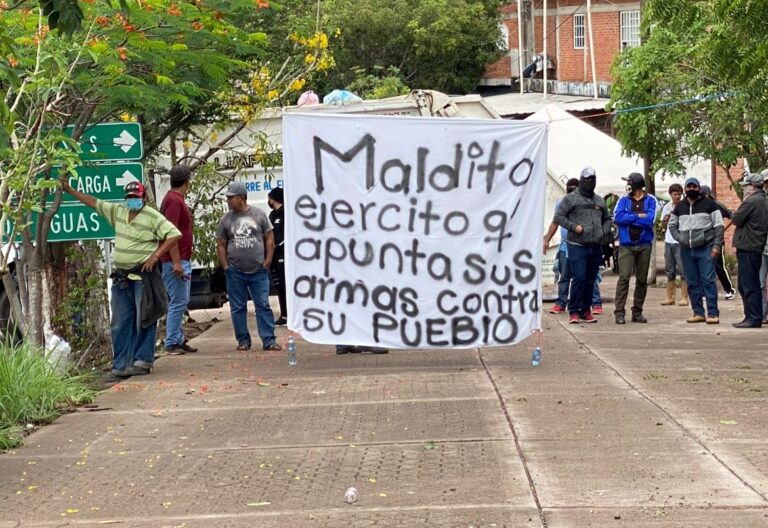 Maldito
ejercito q'
apunta sus
armas contra
su PUEBLO
CARGA
GUAS